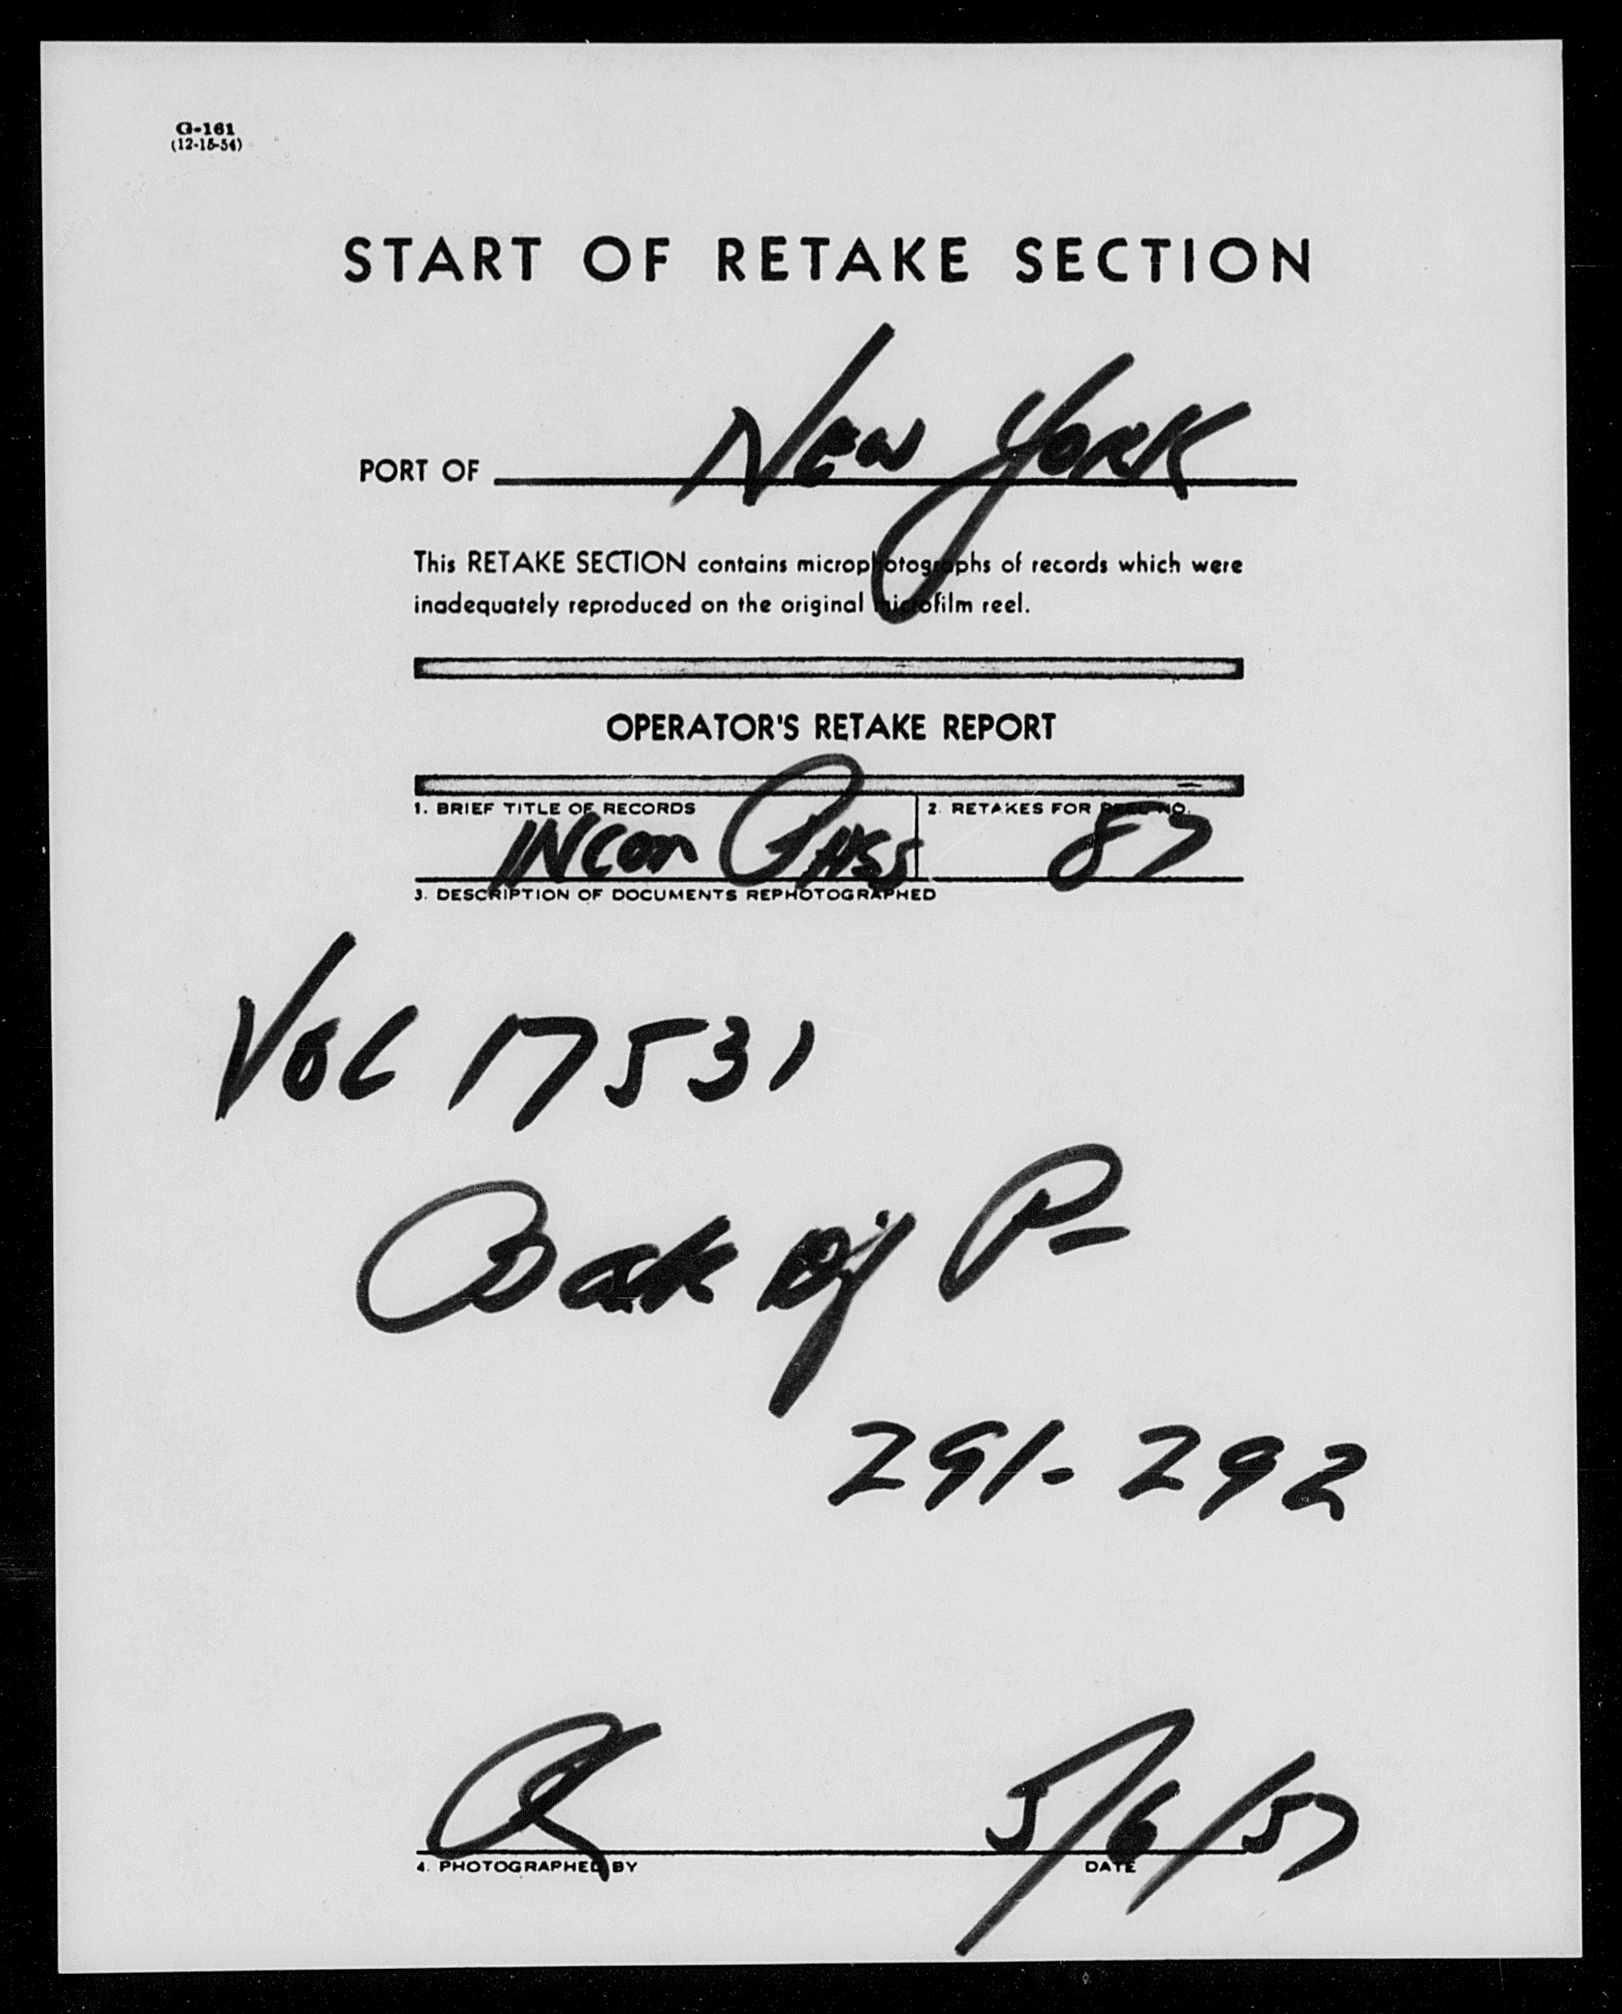 G-161
(12-15-54)
START OF RETAKE SECTION
PORT OF New York
This RETAKE SECTION contains microphotographs of records which were
inadequately reproduced on the original microfilm reel.
OPERATOR'S RETAKE REPORT
1. BRIEF TITLE OF RECORDS 2. RETAKES FOR REEL NO.
INCOM PASS 87
3. DESCRIPTION OF DOCUMENTS REPHOTOGRAPHED
VOL 17531
Back of P-
291-292
5/6/57
4. PHOTOGRAPHED BY DATE